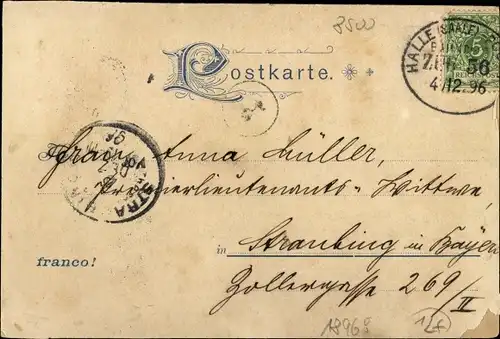 8500
Postkarte.
HALLE (SAALE)
BAHNP.
Z.U. 56
4/12.96
5
Frau Anna Müller,
Premierlieutenants-Wittwe,
in Straubing in Bayern
Zollergasse 269/II
franco!
STRA
18968
12f